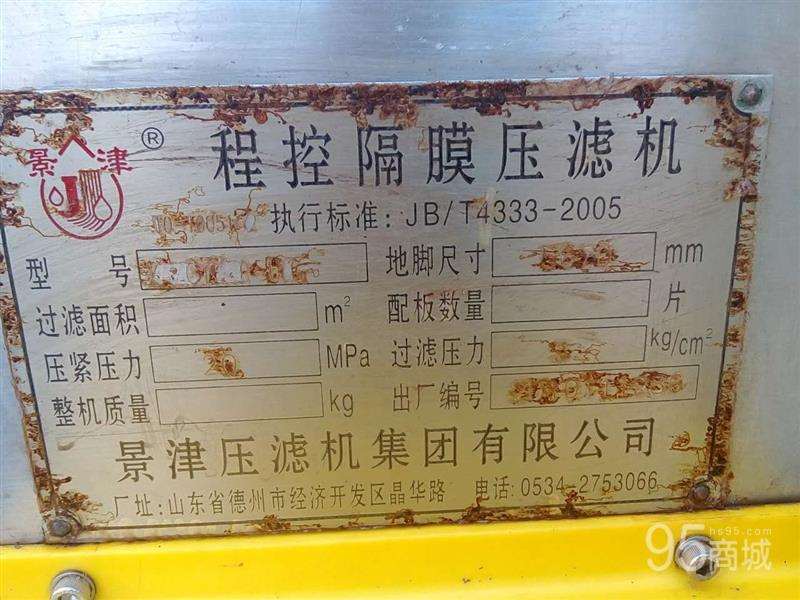 景津 ® 程控隔膜压滤机
执行标准: JB/T4333-2005
型号 地脚尺寸 mm
过滤面积 m² 配板数量 片
压紧压力 MPa 过滤压力 kg/cm²
整机质量 kg 出厂编号
景津压滤机集团有限公司
厂址:山东省德州市经济开发区晶华路 电话:0534-2753066
hs95.com
95商城